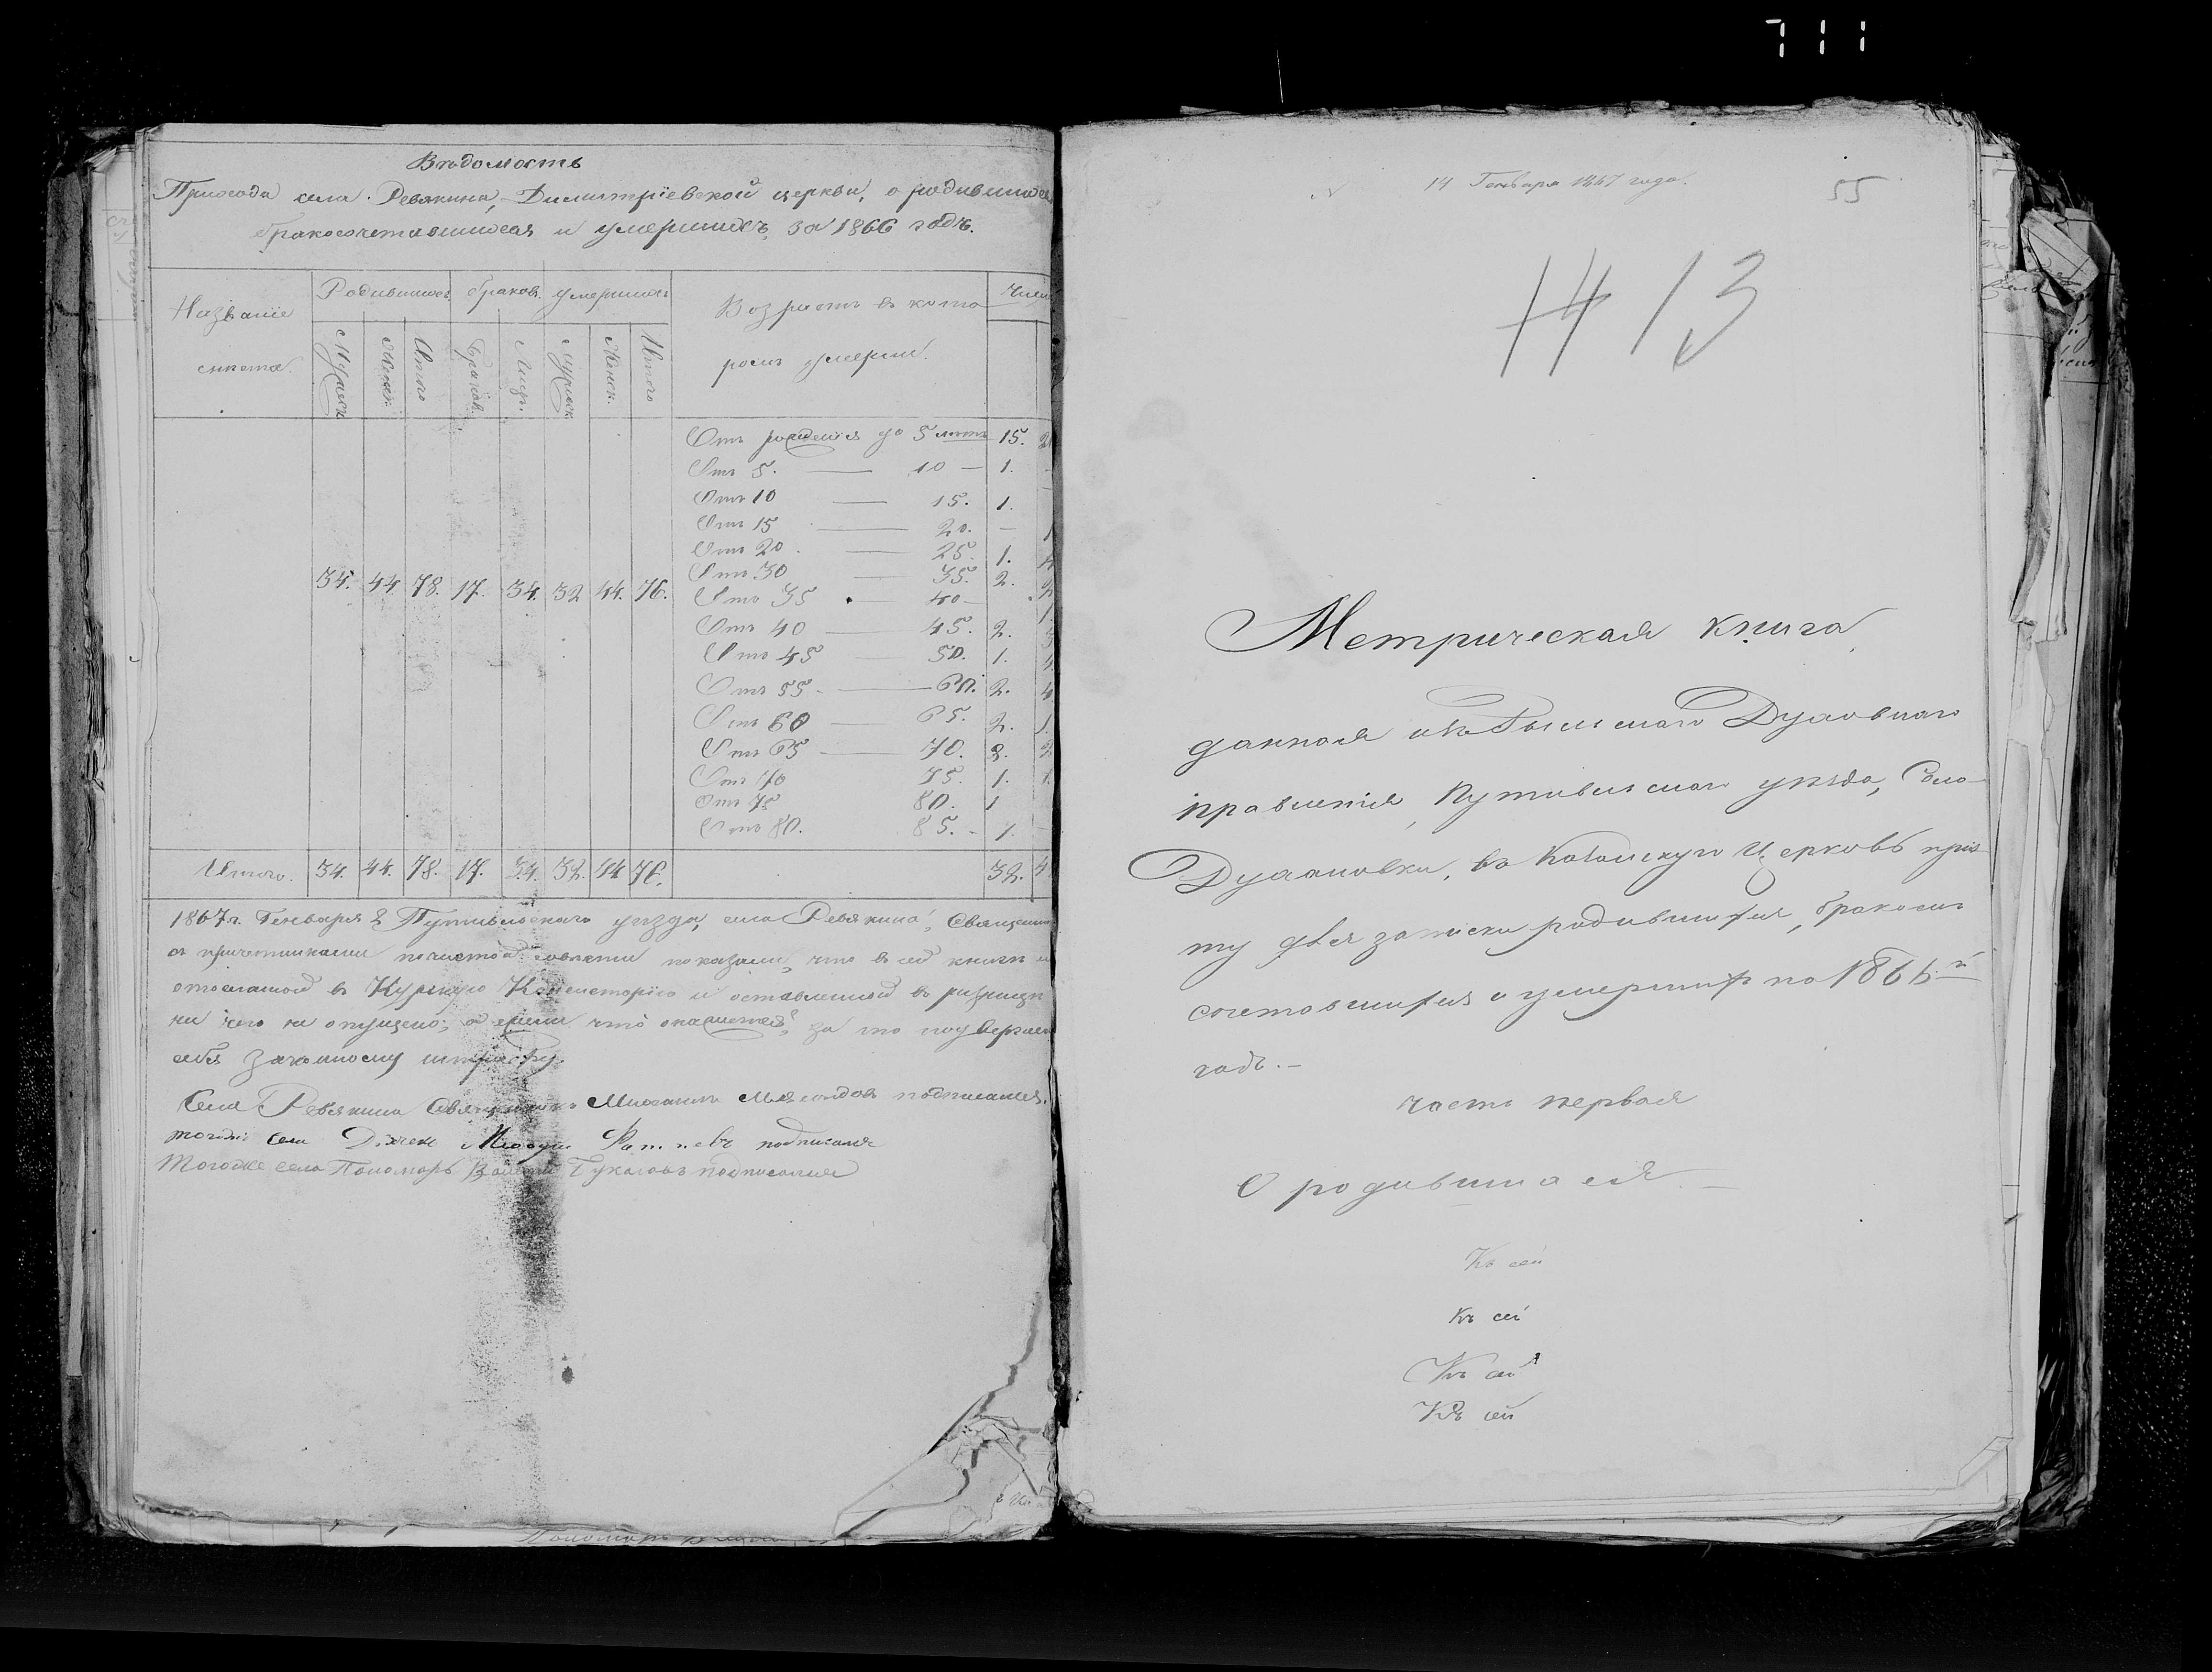 711
Вѣдомость
Прихода села Ревякина, Димитріевской церкви, о родившихся
бракосочетавшихся и умершихъ, за 1866 годъ.
Названіе
Родившихъ браков. умершихъ
Возрастъ в кото
росмъ умерли.
Число
Мужеск. Женск. Итого Браков. Лиц. Мужск. Женск. Итого
Отъ рожденія до 5 лѣтъ 15.
Отъ 5. — 10 — 1.
Отъ 10 — 15. 1.
Отъ 15 — 20. —
Отъ 20. — 25. 1.
Отъ 30 — 35. 2.
34. 44. 78. 17. 34. 32 44. 76.
Отъ 35 — 40 —
Отъ 40 — 45. 2.
Отъ 45 — 50. 1.
Отъ 55. — 60. 2.
Отъ 60 — 65. 2.
Отъ 65 — 70. 2.
Отъ 70 75. 1.
Отъ 75 80. 1
Отъ 80. 85. - 1.
Итого. 34. 44. 78. 17. 34. 32. 44 76. 32.
1867 г. Генваря 2 Путивльскаго уѣзда, села Ревякина, Священн
съ причетниками по чистой совѣсти показали, что в сей книгѣ
отосланной в Курскую Консисторію и оставленной в ризницѣ
ни чего не опущено; а ежели что окажется, за то подвергаем
себя законному штрафу.
Села Ревякина Священникъ Михаилъ подписался.
тогожъ села Дьячекъ подписался
Тогоже села Пономарь подписался
Пономарь
14 Генваря 1867 года.
55
14 13
Метрическая книга
данная изъ Рыльскаго Духовнаго
правленія, Путивльскаго уѣзда, Село
въ Церковь при
ту для записки родившихся, бракосо
сочетавшихся и умершихъ на 1866.й
годъ. —
часть первая
О родившихся —
Къ сей
Къ сей
Къ сей
Къ сей